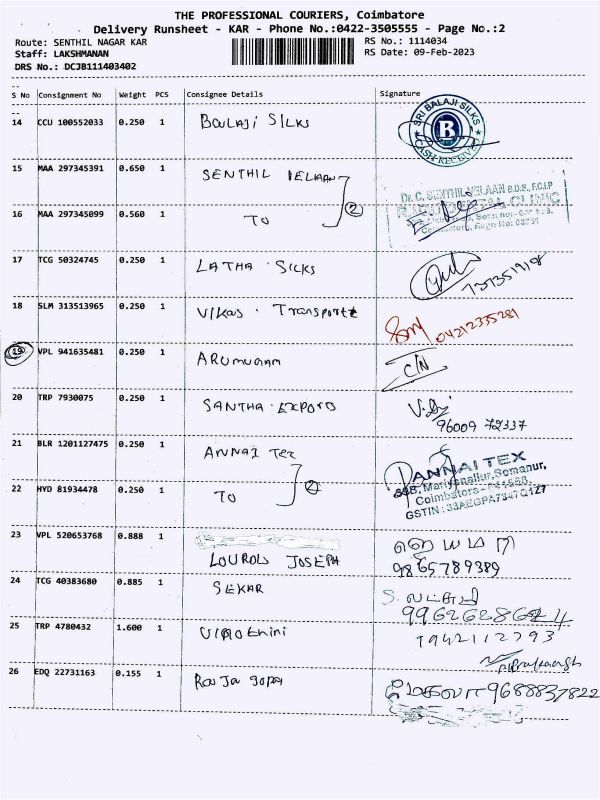 THE PROFESSIONAL COURIERS, Coimbatore
Delivery Runsheet - KAR - Phone No.:0422-3505555 - Page No.:2
Route: SENTHIL NAGAR KAR
RS No.: 1114034
Staff: LAKSHMANAN
RS Date: 09-Feb-2023
DRS No.: DCJB111403402
S No Consignment No Weight PCS Consignee Details Signature
14 CCU 100552033 0.250 1 BALAJI SILKS SRI BALAJI SILKS B CASH RECEIVED
15 MAA 297345391 0.650 1 SENTHIL VELAAN
Dr. C. SENTHIL VELAAN B.D.S., F.C.I.P
DENTAL CLINIC
16 MAA 297345099 0.560 1 TO 2
17 TCG 50324745 0.250 1 LATHA SILKS
18 SLM 313513965 0.250 1 Vikas Transport 04212335281
19 VPL 941635481 0.250 1 ARUMUGAM C/N
20 TRP 7930075 0.250 1 SANTHA EXPORTS
96009 72337
21 BLR 1201127475 0.250 1 ANNAI Tex ANNAI TEX
22 HYD 81934478 0.250 1 TO 2
GSTIN :
23 VPL 520653768 0.888 1
LOURDU JOSEPH
9865789389
24 TCG 40383680 0.885 1 SEKAR
25 TRP 4780432 1.600 1
26 EDQ 22731163 0.155 1 Raja gopa 9688837822